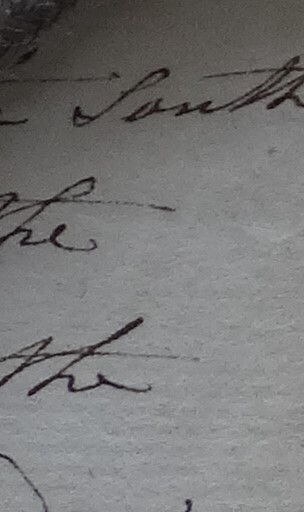 South
the
the